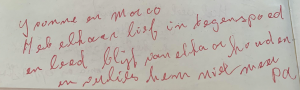 Yvonne en Marco
Heb elkaar lief in tegenspoed
en leed blijf van elkaar houden
en verlies hem niet meer
Pa